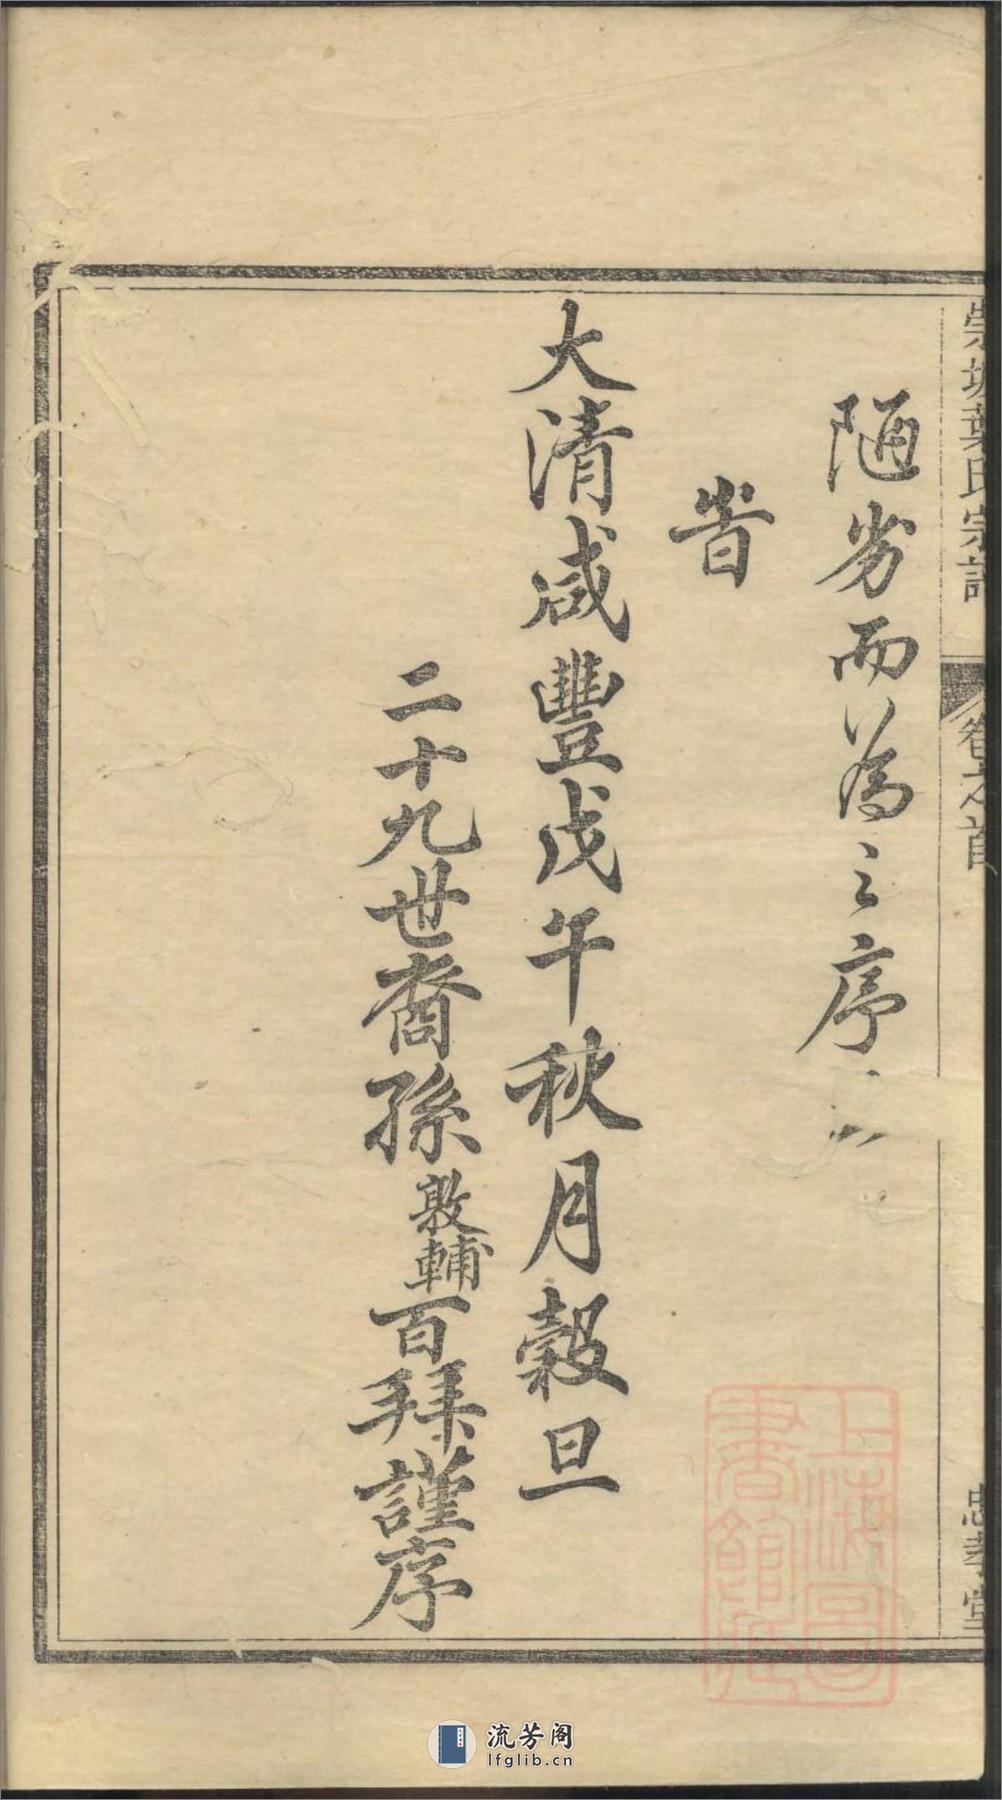 葉氏宗譜
卷之首
忠孝堂
陋劣而為之序
旹
大清咸豐戊午秋月穀旦
二十九世裔孫敦輔百拜謹序
上海圖書館藏
流芳阁
lfglib.cn